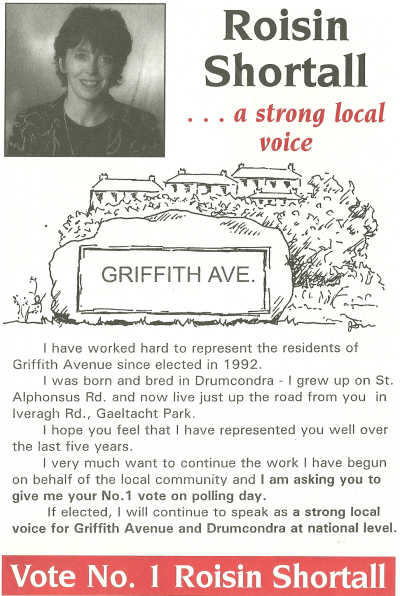 Roisin
Shortall
. . . a strong local
voice
GRIFFITH AVE.
I have worked hard to represent the residents of
Griffith Avenue since elected in 1992.
I was born and bred in Drumcondra - I grew up on St.
Alphonsus Rd. and now live just up the road from you in
Iveragh Rd., Gaeltacht Park.
I hope you feel that I have represented you well over
the last five years.
I very much want to continue the work I have begun
on behalf of the local community and I am asking you to
give me your No.1 vote on polling day.
If elected, I will continue to speak as a strong local
voice for Griffith Avenue and Drumcondra at national level.
Vote No. 1 Roisin Shortall